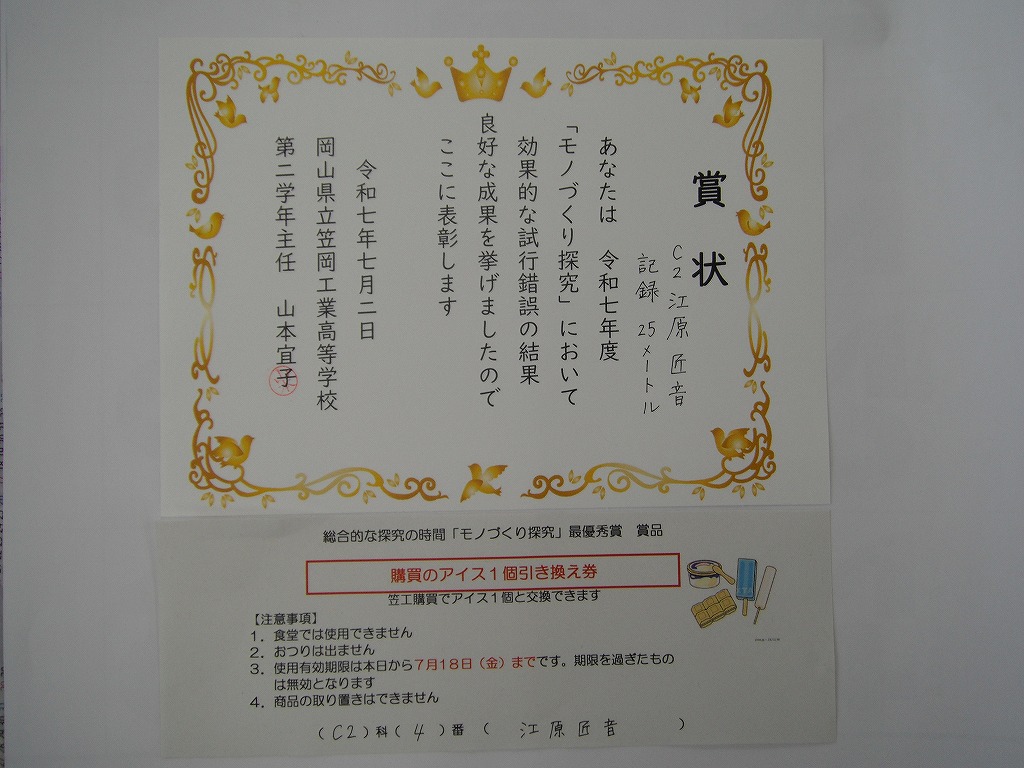 賞状
C2 江原 匠音
記録 25メートル
あなたは 令和七年度
「モノづくり探究」において
効果的な試行錯誤の結果
良好な成果を挙げましたので
ここに表彰します
令和七年七月二日
岡山県立笠岡工業高等学校
第二学年主任 山本宜子
総合的な探究の時間「モノづくり探究」最優秀賞 賞品
購買のアイス1個引き換え券
笠工購買でアイス1個と交換できます
【注意事項】
1．食堂では使用できません
2．おつりは出ません
3．使用有効期限は本日から7月18日（金）までです。期限を過ぎたもの
は無効となります
4．商品の取り置きはできません
（C2）科（4）番（ 江原匠音 ）